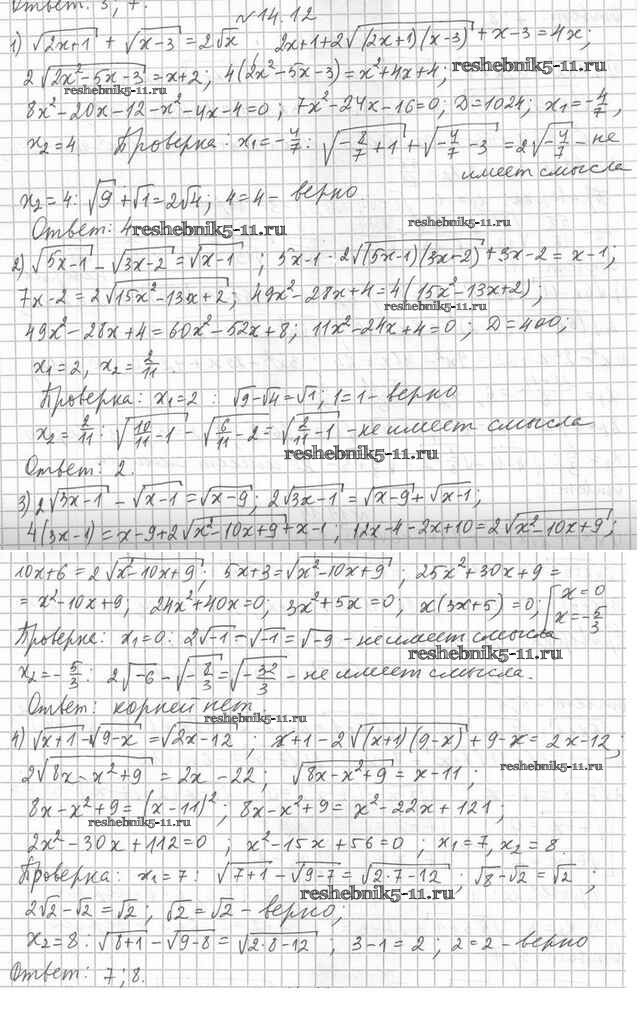 Ответ: 3; 7.
№14.12
1) √(2x+1) + √(x-3) = 2√x, 2x+1+2√((2x+1)(x-3)) + x-3 = 4x;
2√(2x²-5x-3) = x+2; 4(2x²-5x-3) = x²+4x+4; reshebnik5-11.ru
8x²-20x-12-x²-4x-4=0; 7x²-24x-16=0; D=1024; x₁=-4/7,
reshebnik5-11.ru
x₂=4 Проверка: x₁=-4/7: √(-8/7+1) + √(-4/7-3) = 2√(-4/7) - не
имеет смысла
x₂=4: √9+√1=2√4; 4=4 - верно
Ответ: 4 reshebnik5-11.ru reshebnik5-11.ru
2) √(5x-1) - √(3x-2) = √(x-1); 5x-1-2√((5x-1)(3x-2)) + 3x-2 = x-1;
7x-2 = 2√(15x²-13x+2); 49x²-28x+4 = 4(15x²-13x+2);
reshebnik5-11.ru
49x²-28x+4 = 60x²-52x+8; 11x²-24x+4=0; D=400;
x₁=2, x₂=2/11.
Проверка: x₁=2: √9-√4=√1; 1=1 - верно
x₂=2/11: √(10/11-1) - √(6/11-2) = √(2/11-1) - не имеет смысла
reshebnik5-11.ru
Ответ: 2.
3) 2√(3x-1) - √(x-1) = √(x-9); 2√(3x-1) = √(x-9) + √(x-1);
4(3x-1) = x-9+2√(x²-10x+9) + x-1; 12x-4-2x+10 = 2√(x²-10x+9);
10x+6 = 2√(x²-10x+9); 5x+3 = √(x²-10x+9); 25x²+30x+9 =
= x²-10x+9; 24x²+40x=0; 3x²+5x=0; x(3x+5)=0; [x=0 x=-5/3
Проверка: x₁=0: 2√-1-√-1=√-9 - не имеет смысла
reshebnik5-11.ru
x₂=-5/3: 2√-6 - √(-8/3) = √(-32/3) - не имеет смысла.
Ответ: корней нет
reshebnik5-11.ru
4) √(x+1) - √(9-x) = √(2x-12); x+1-2√((x+1)(9-x)) + 9-x = 2x-12;
2√(8x-x²+9) = 2x-22; √(8x-x²+9) = x-11;
8x-x²+9 = (x-11)²; 8x-x²+9 = x²-22x+121;
reshebnik5-11.ru
2x²-30x+112=0; x²-15x+56=0; x₁=7, x₂=8.
Проверка: x₁=7: √(7+1) - √(9-7) = √(2·7-12); √8-√2=√2;
reshebnik5-11.ru
2√2-√2=√2; √2=√2 - верно;
x₂=8: √(8+1) - √(9-8) = √(2·8-12); 3-1=2; 2=2 - верно
Ответ: 7; 8.